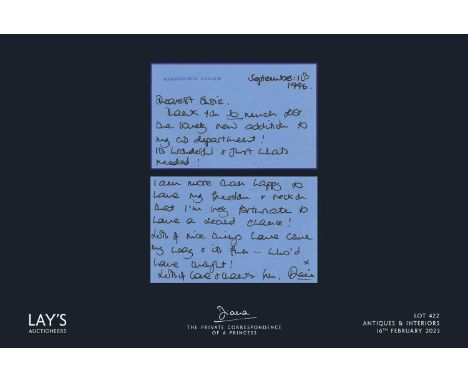 KENSINGTON PALACE
September: 1st
1996.
Dearest Susie.
Thank you so much for
the lovely new addition to
my CD department!
It's wonderful & just what's
needed!
I am more than happy to
have my freedom &
that I'm very fortunate to
have a second chance!
Lots of nice things have come
my way & its fun... who'd
have thought!
Lots of love & thanks from, Diana
x
LAY'S
AUCTIONEERS
Diana
THE PRIVATE CORRESPONDENCE
OF A PRINCESS
LOT 422
ANTIQUES & INTERIORS
16TH FEBRUARY 2023